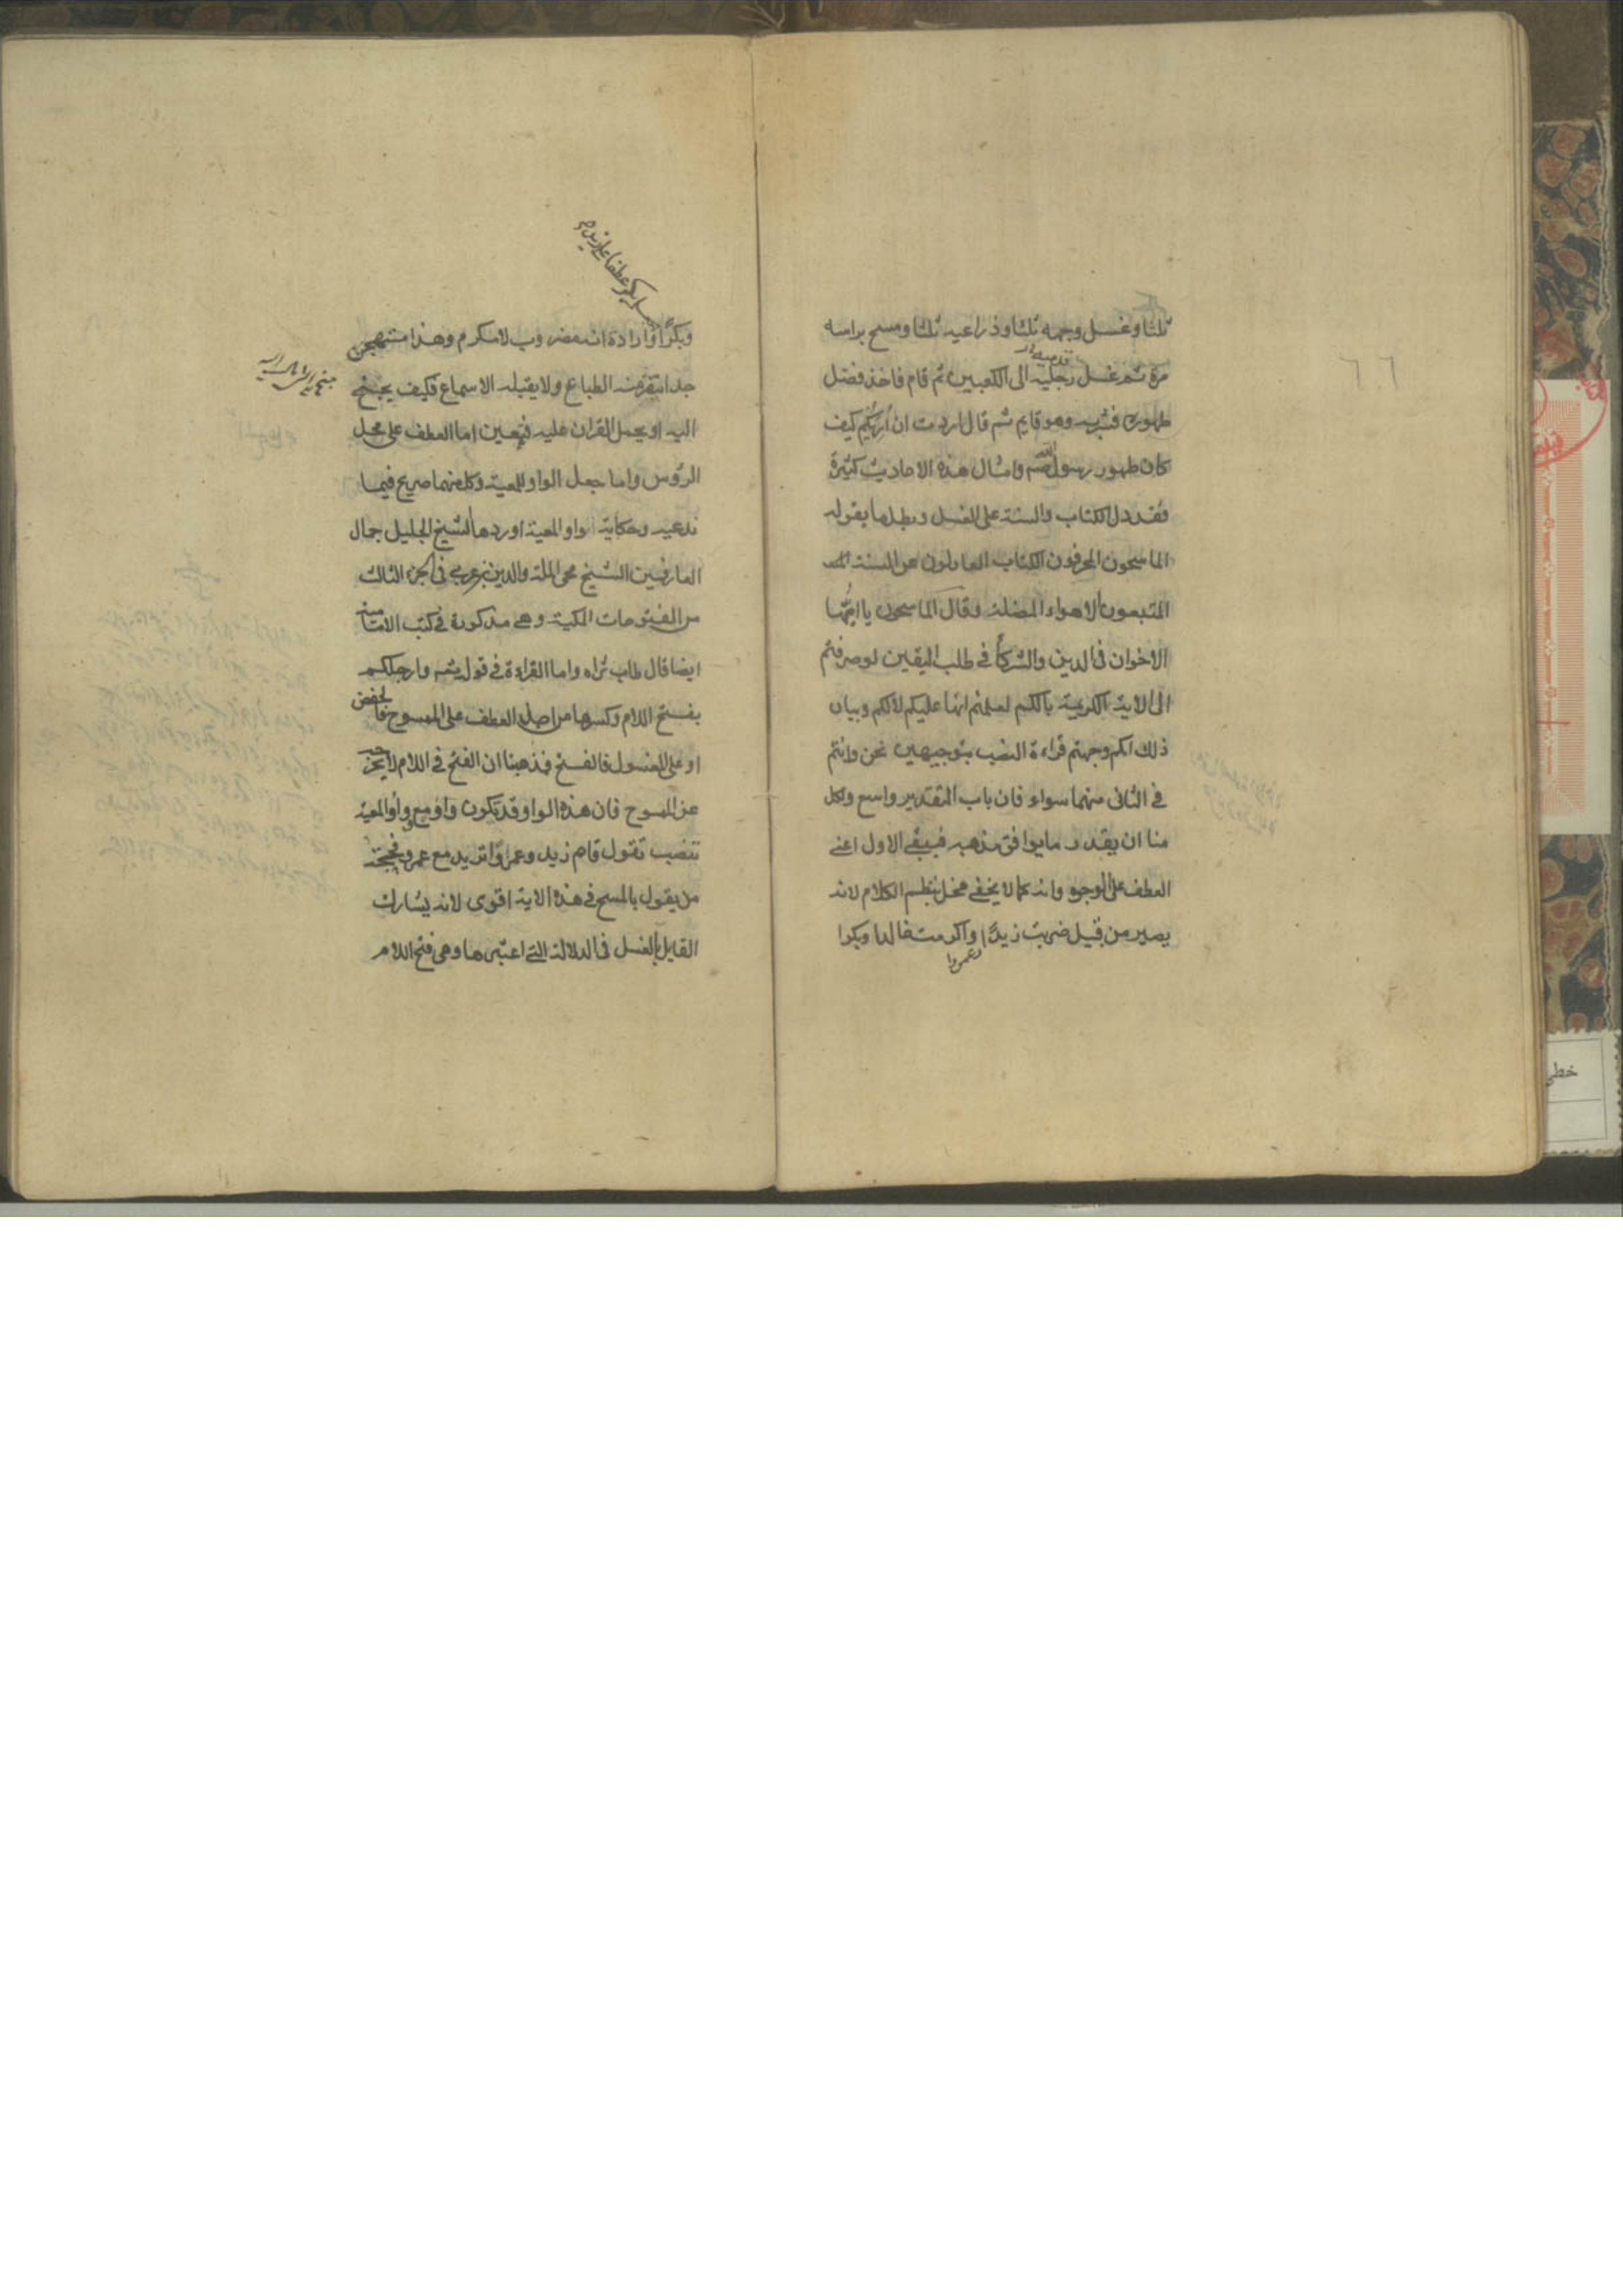 ثلثا وغسل وجهه ثلثا وذراعيه ثلثا ومسح براسه
مرة ثم غسل رجليه الى الكعبين ثم قام فاخذ فضل
قدميه
طهوره فشربه وهو قايم ثم قال اردت ان اريكم كيف
كان طهور رسول الله صم وامثال هذه الاحاديث كثيرة
فقد دل الكتاب والسنة على الغسل وبطل ما يقوله
الماسحون المحرفون الكتاب العادلون عن السنة
المتبعون الاهواء المضلة وقال الماسحون يا ايها
الاخوان في الدين والشركاء في طلب اليقين لو صرفتم
الى الاية الكريمة بالكم لعلمتم انها عليكم لا لكم وبيان
ذلك انكم وجهتم قراءة النصب بتوجيهين نحن وانتم
في الثاني منهما سواء فان باب التقدير واسع ولكل
منا ان يقدر ما يوافق مذهبه فبقي الاول اعني
العطف على الوجوه وانه كما لا يخفى مخل بنظم الكلام لانه
يصير من قبيل ضربت زيدا وعمروا واكرمت خالدا وبكرا
٦٦
وبكرا وارادة انه مضروب لا مكرم وهذا مستهجن
جدا تنفر منه الطباع ولا يقبله الاسماع فكيف يجنح
اليه او يحمل القران عليه فتعين اما العطف على محل
الرؤس واما جعل الواو للمعية وكل منهما صريح فيما
ندعيه وحكاية واو المعية اوردها الشيخ الجليل جمال
العارفين الشيخ محي الملة والدين بن عربي في الجزء الثالث
من الفتوحات المكية وهي مذكورة في كتب الامامية
ايضا قال طاب ثراه واما القراءة في قوله تعه وارجلكم
بفتح اللام وكسرها من اجل العطف على الممسوح فالخفض
او على المغسول فالفتح فمذهبنا ان الفتح في اللام لا يخرجه
عن الممسوح فان هذه الواو قد تكون واو مع وواو المعية
تنصب تقول قام زيد وعمروا تريد مع عمرو فحجة
من يقول بالمسح في هذه الاية اقوى لانه يشارك
القايل بالغسل في الدلالة التي اعتبرها وهي فتح اللام